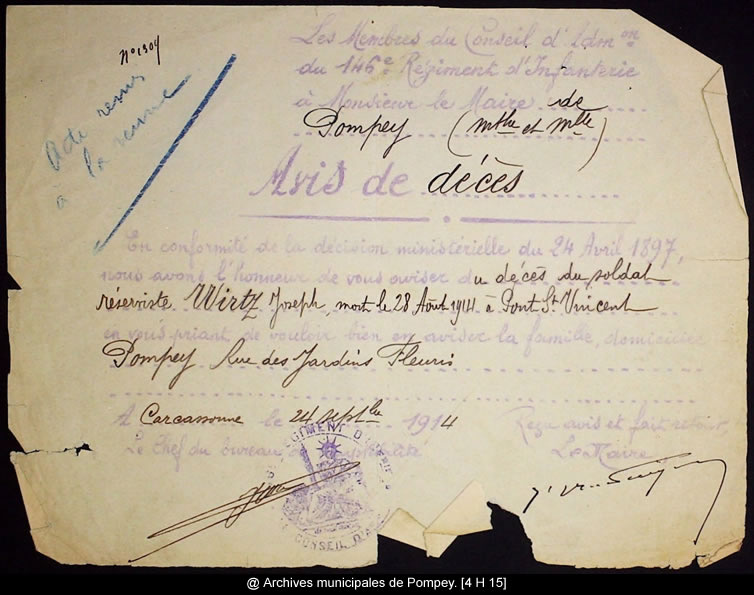 N° 1304
Acte remis
à la
Les Membres du Conseil d'Adm.on
du 146e Régiment d'Infanterie
à Monsieur le Maire de
Pompey (Mthe et Mlle)
Avis de décès
En conformité de la décision ministérielle du 24 Avril 1897,
nous avons l'honneur de vous aviser du décès du soldat
réserviste Wirtz Joseph, mort le 28 Août 1914 à Pont St Vincent
en vous priant de vouloir bien en aviser la famille, domiciliée
Pompey Rue des Jardins Fleuris
A Carcassonne le 24 septbre 1914
Reçu avis et fait retour,
Le Chef du bureau de comptabilité
Le Maire
REGIMENT D'INFANTERIE
CONSEIL D'A
@ Archives municipales de Pompey. [4 H 15]